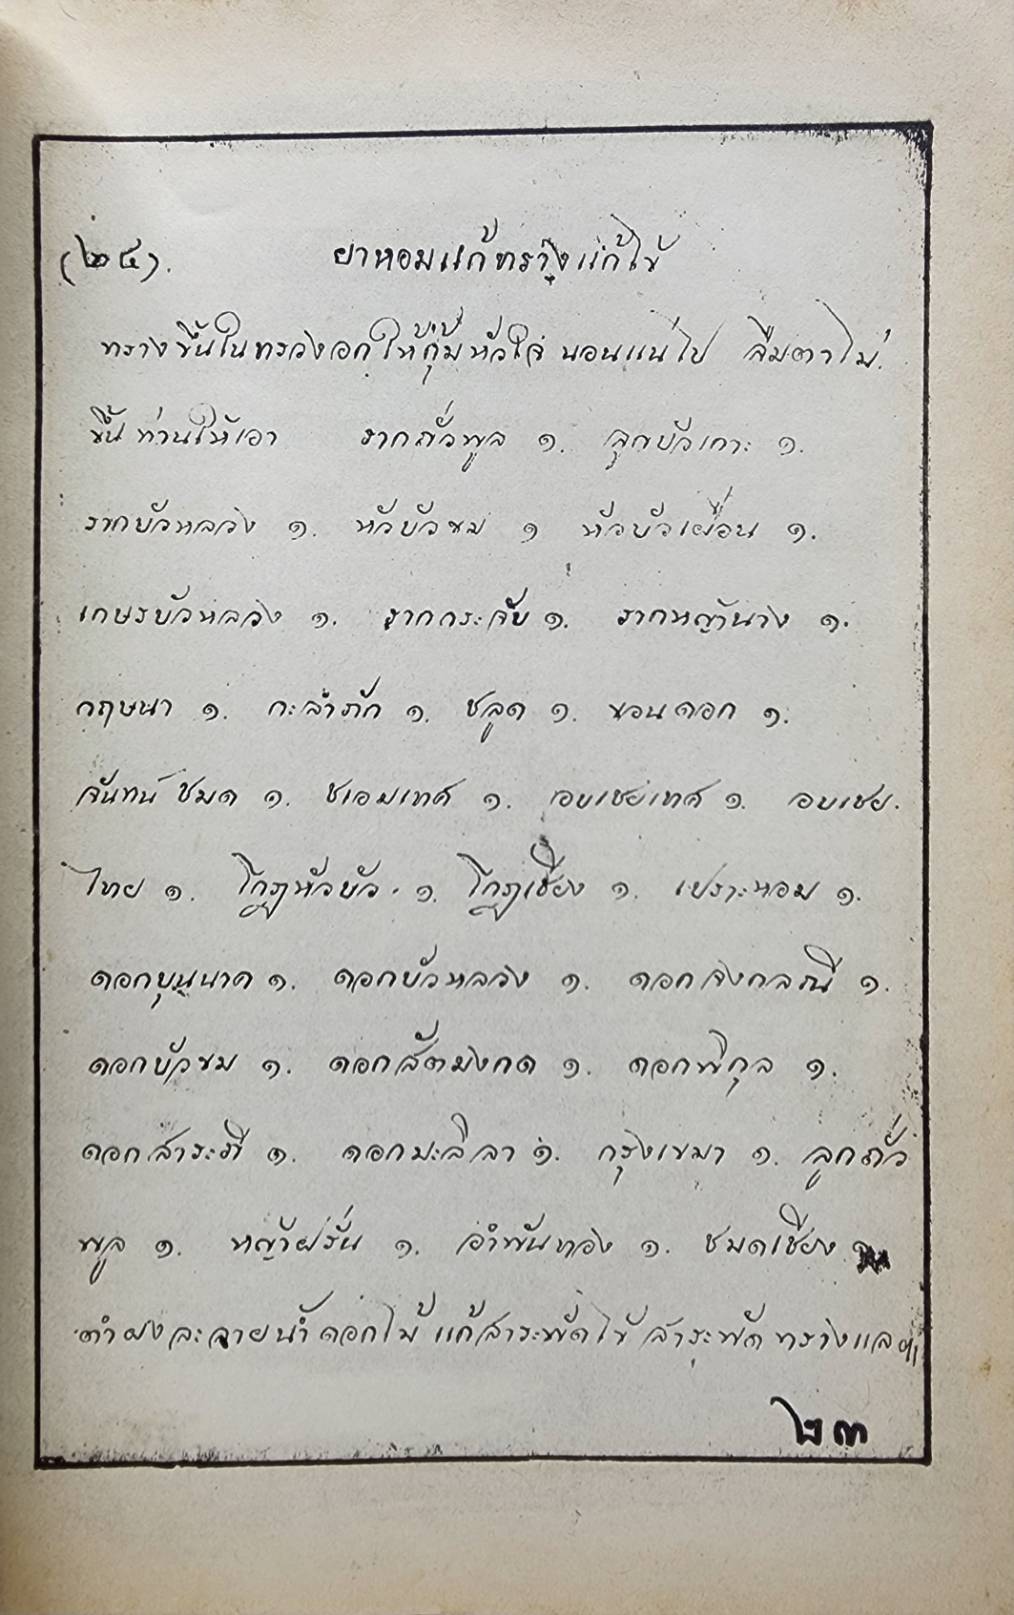 (๒๔). ยาหอมแก้ทรางแก้ไข้
ทรางขึ้นในทรวงอกให้กุ้มหัวใจ นอนแน่ไป ลืมตาไม่
ขึ้น ท่านให้เอา รากถั่วพูล ๑. ลูกบัวเกาะ ๑.
รากบัวหลวง ๑. หัวบัวขม ๑ หัวบัวเผื่อน ๑.
เกษรบัวหลวง ๑. รากกระจับ ๑. รากหญ้านาง ๑.
กฤษนา ๑. กะลำภัก ๑. ชลูด ๑. ขอนดอก ๑.
จันทน์ ชมด ๑. ชเอมเทศ ๑. อบเชยเทศ ๑. อบเชย.
ไทย ๑. โกฎหัวบัว. ๑. โกฎเชียง ๑. เปราะหอม ๑.
ดอกบุนนาค ๑. ดอกบัวหลวง ๑. ดอกจงกลณี ๑.
ดอกบัวขม ๑. ดอกสัตมงกต ๑. ดอกพิกุล ๑.
ดอกสาระภี ๑. ดอกมะลิลา ๑. กรุงเขมา ๑. ลูกถั่ว
พูล ๑. หญ้าฝรั่น ๑. อำพันทอง ๑. ชมดเชียง
ตำผงละลายน้ำดอกไม้ แก้สาระพัดไข้ สาระพัดทรางแล
๒๓